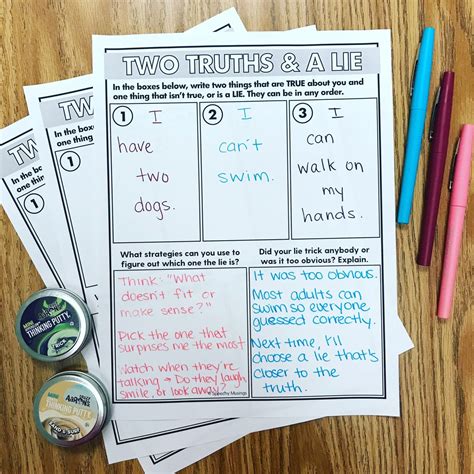 TWO TRUTHS & A LIE
In the boxes below, write two things that are TRUE about you and
one thing that isn't true, or is a LIE. They can be in any order.
1 I
have
two
dogs.
2 I
can't
swim.
3 I
can
walk on
my
hands.
What strategies can you use to
figure out which one the lie is?
Think: "What
doesn't fit or
make sense?"
Pick the one that
surprises me the most
Watch when they're
talking → Do they laugh,
smile, or look away?
Did your lie trick anybody or
was it too obvious? Explain.
It was too obvious.
Most adults can
swim so everyone
guessed correctly.
Next time, I'll
choose a lie that's
closer to the
truth.
Speechy Musings
TW
In the bo
one thing
1
TW
In the
one thi
1
MINI
THINKING PUTTY
MINI
THINKING PUTTY